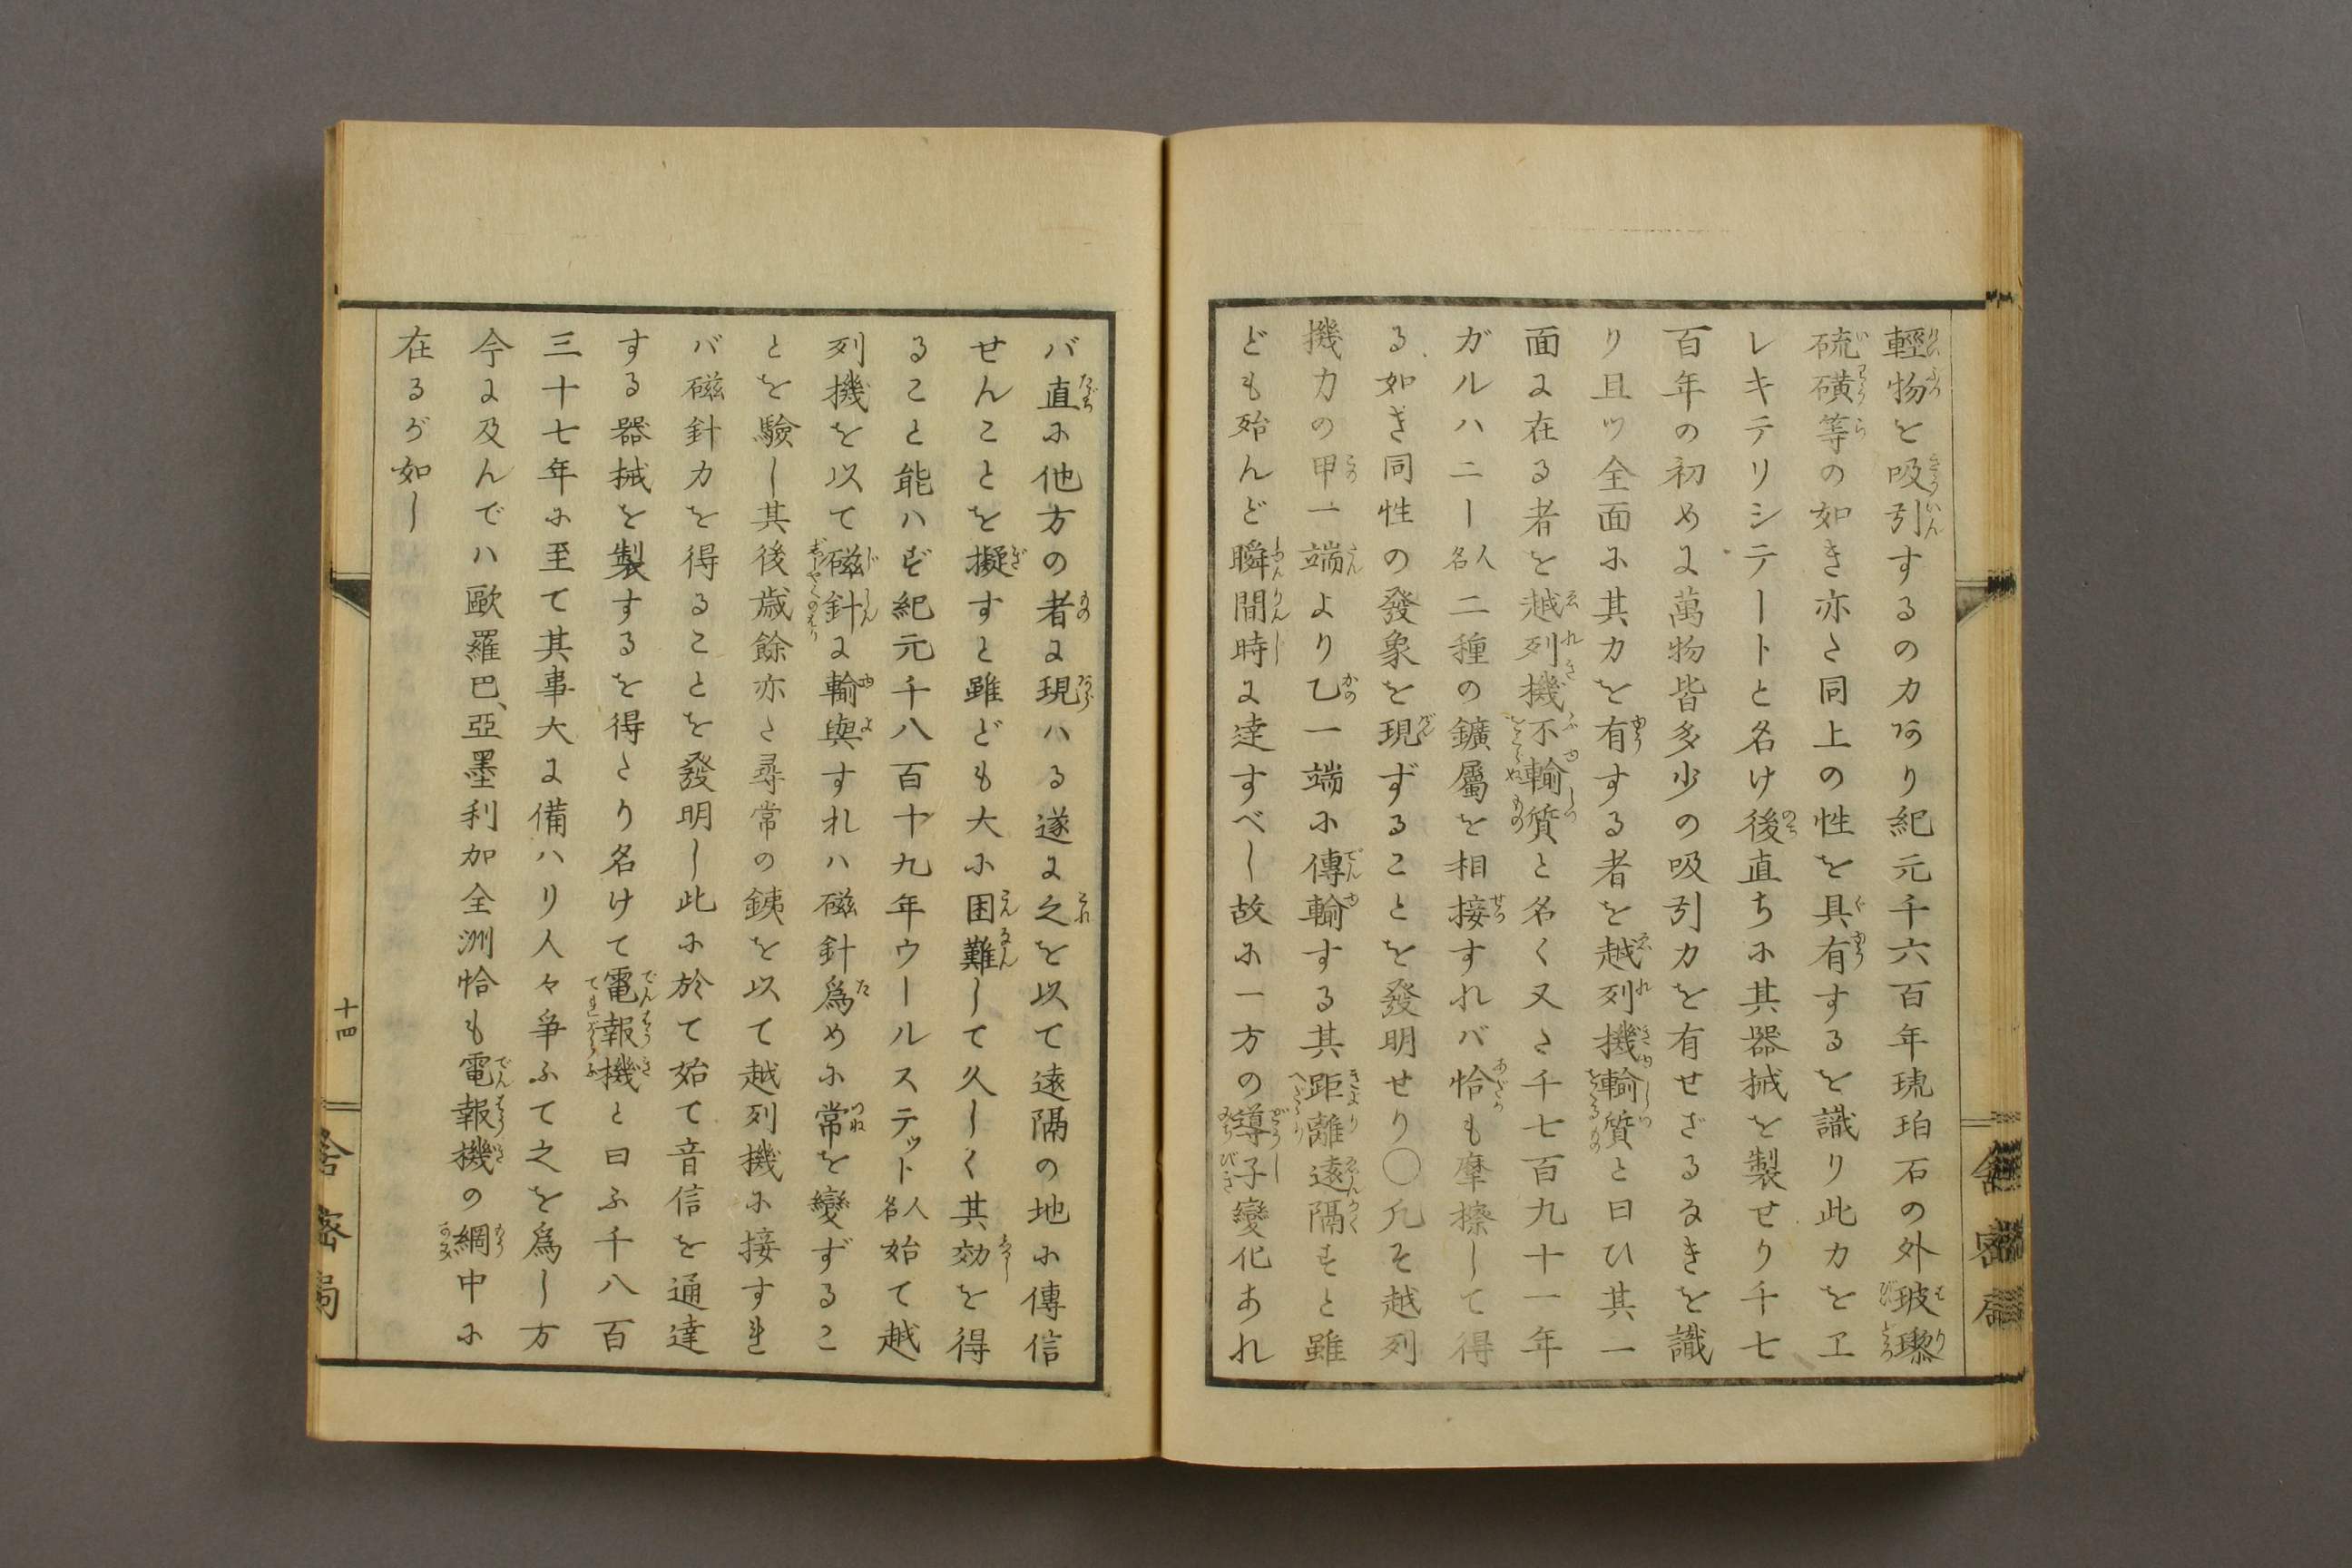 輕物を吸引するの力あり紀元千六百年琥珀石の外玻瓈
硫磺等の如き亦た同上の性を具有するを識り此力をエ
レキテリシテートと名け後直ちに其器械を製せり千七
百年の初めに萬物皆多少の吸引力を有せざるなきを識
り且ツ全面に其力を有する者を越列機輸質と曰ひ其一
面に在る者を越列機不輸質と名く又た千七百九十一年
ガルハニー人名二種の鑛屬を相接すれバ恰も摩擦して得
る如き同性の發象を現ずることを發明せり〇凡そ越列
機力の甲一端より乙一端に傳輸する其距離遠隔すと雖
ども殆んど瞬間時に達すべし故に一方の導子變化あれ
バ直に他方の者に現ハる遂に之を以て遠隔の地に傳信
せんことを擬すと雖ども大に困難して久しく其効を得
ること能ハず紀元千八百十九年ウールステット人名始て越
列機を以て磁針に輸與すれハ磁針爲めに常を變ずるこ
とを驗し其後歳餘亦た尋常の銕を以て越列機に接すれ
バ磁針力を得ることを發明し此に於て始て音信を通達
する器械を製するを得たり名けて電報機と曰ふ千八百
三十七年に至て其事大に備ハり人々爭ふて之を爲し方
今に及んでハ歐羅巴、亞墨利加全洲恰も電報機の綱中に
在るが如し
十四
舎密局